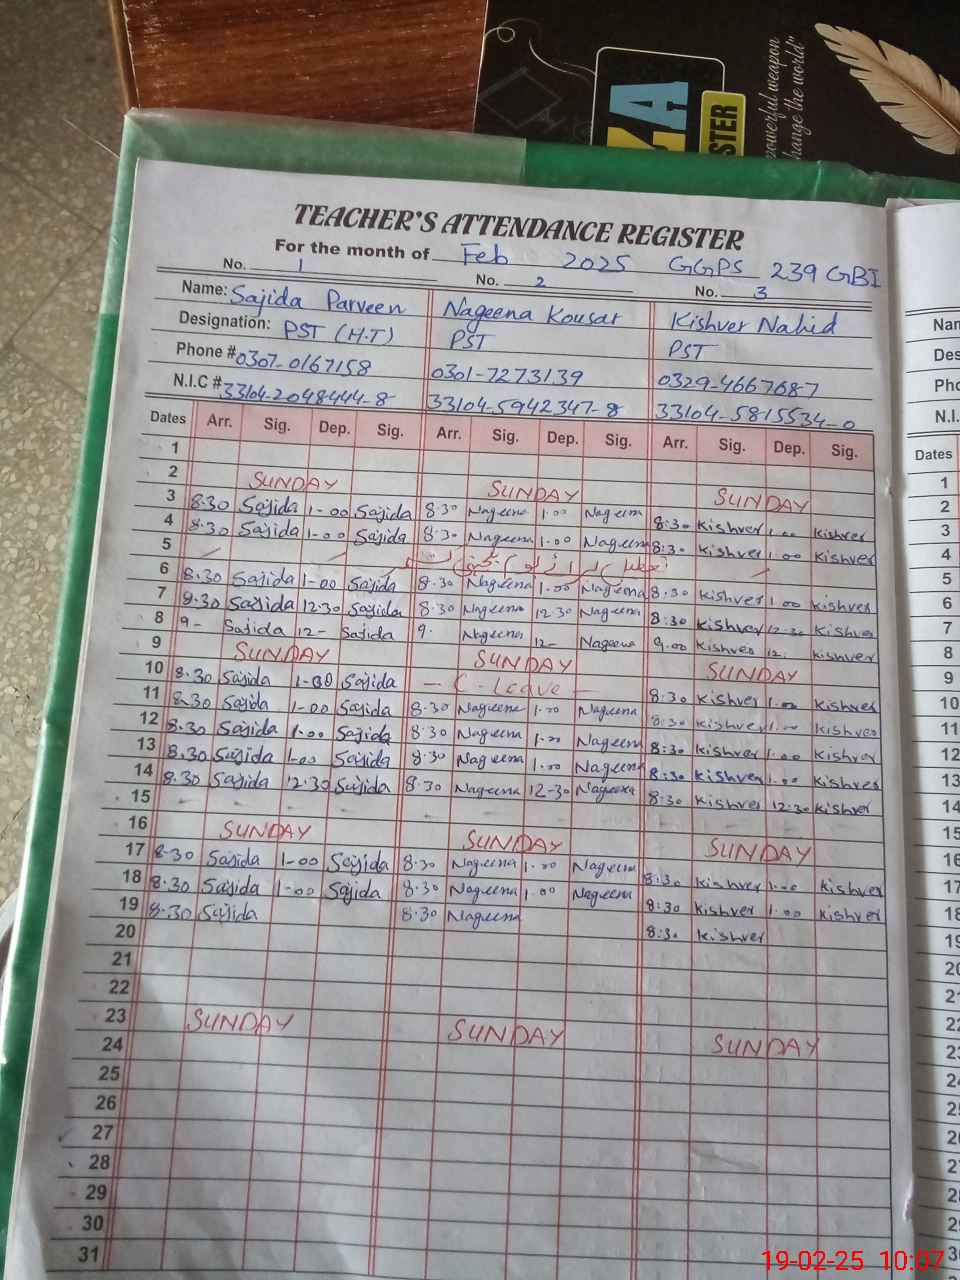 powerful weapon
change the world"
ZA
STER
TEACHER'S ATTENDANCE REGISTER
For the month of Feb 2025 GGPS 239 GBI
No. 1 No. 2 No. 3
Name: Sajida Parveen Nageena Kousar Kishver Nahid
Designation: PST (H.T) PST PST
Phone # 0307-0167158 0301-7273139 0329-4667687
N.I.C # 33104-2048444-8 33104-5942347-8 33104-5815534-0
Dates Arr. Sig. Dep. Sig. Arr. Sig. Dep. Sig. Arr. Sig. Dep. Sig.
1
2 SUNDAY SUNDAY SUNDAY
3 8.30 Sajida 1-00 Sajida 8.30 Nageena 1.00 Nageena 8:30 Kishver 1.00 Kishver
4 8.30 Sajida 1-00 Sajida 8.30 Nageena 1.00 Nageena 8:30 Kishver 1.00 Kishver
5
6 8.30 Sajida 1-00 Sajida 8.30 Nageena 1.00 Nageena 8:30 Kishver 1.00 Kishver
7 8.30 Sajida 12.30 Sajida 8.30 Nageena 12.30 Nageena 8:30 Kishver 12.30 Kishver
8 9- Sajida 12- Sajida 9. Nageena 12- Nageena 9.00 Kishver 12. Kishver
9 SUNDAY SUNDAY SUNDAY
10 8.30 Sajida 1-00 Sajida - C-Leave - 8:30 Kishver 1.00 Kishver
11 8.30 Sajida 1-00 Sajida 8.30 Nageena 1.00 Nageena 8:30 Kishver 1.00 Kishver
12 8.30 Sajida 1.00 Sajida 8.30 Nageena 1.00 Nageena 8:30 Kishver 1.00 Kishver
13 8.30 Sajida 1-00 Sajida 8.30 Nageena 1.00 Nageena 8:30 Kishver 1.00 Kishver
14 8.30 Sajida 12.30 Sajida 8.30 Nageena 12-30 Nageena 8:30 Kishver 12:30 Kishver
15
16 SUNDAY SUNDAY SUNDAY
17 8.30 Sajida 1-00 Sajida 8.30 Nageena 1.00 Nageena 8:30 Kishver 1.00 Kishver
18 8.30 Sajida 1-00 Sajida 8.30 Nageena 1.00 Nageena 8:30 Kishver 1.00 Kishver
19 8.30 Sajida 8.30 Nageena 8:30 Kishver
20
21
22
23 SUNDAY SUNDAY SUNDAY
24
25
26
27
28
29
30
31
Nam
Des
Pho
N.I.
Dates
1
2
3
4
5
6
7
8
9
10
11
12
13
14
15
16
17
18
19
20
21
22
23
24
25
26
27
28
29
30
31
19-02-25 10:07